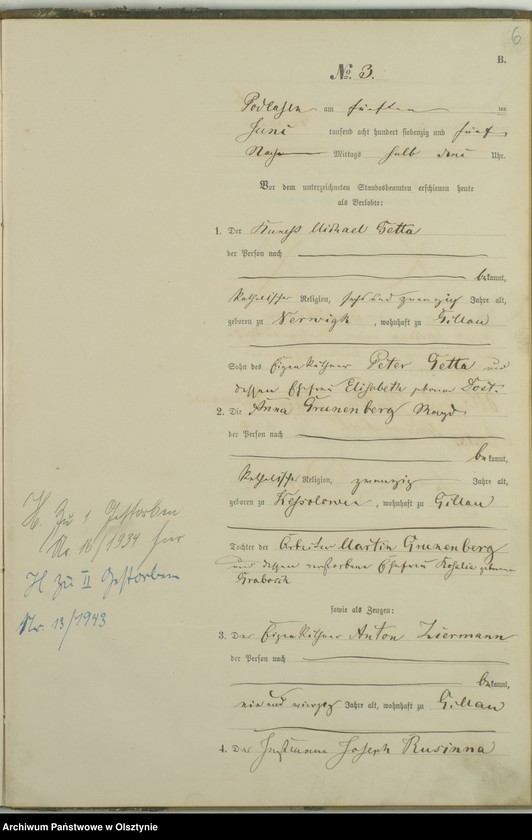 6
B.
No. 3.
Podlassen am fünften ten
Juni tausend acht hundert siebenzig und fünf
Nach Mittags halb drei Uhr.
Vor dem unterzeichneten Standesbeamten erschienen heute
als Verlobte:
1. Der Knecht Michael Getta
der Person nach
bekannt,
katholischer Religion, sechs und zwanzig Jahre alt,
geboren zu Nerwigk, wohnhaft zu Gillau
Sohn des Eigenkäthner Peter Getta und
dessen Ehefrau Elisabeth geborne
2. Die Anna Grunenberg Magd
der Person nach
bekannt,
katholischer Religion, zwanzig Jahre alt,
geboren zu, wohnhaft zu Gillau
Tochter der Arbeiter Martin Grunenberg
und dessen verstorbene Ehefrau Rosalia geborne
Grabosch
sowie als Zeugen:
3. Der Eigenkäthner Anton Ziermann
der Person nach
bekannt,
ein und vierzig Jahre alt, wohnhaft zu Gillau
4. Der Instmann Joseph Rusinna
H. Zu I Gestorben
Nr. 16/1934 hier
H zu II Gestorben
Nr. 13/1943
Archiwum Państwowe w Olsztynie